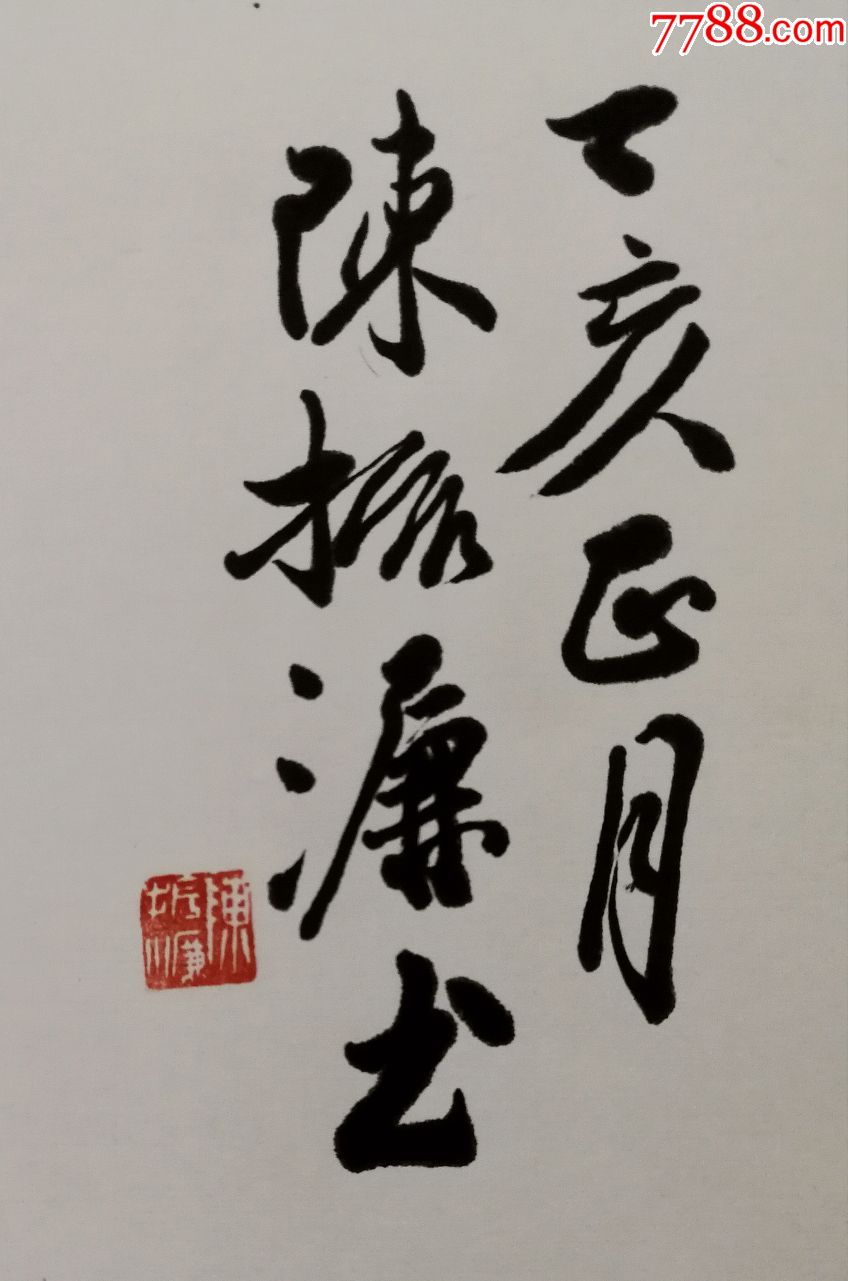 7788.com
丁亥正月
陳振濂书
陳振濂